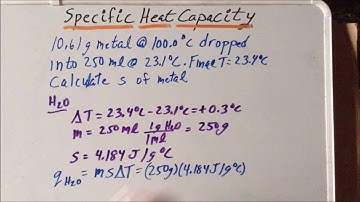 Specific Heat Capacity
10.61g metal @ 100.0°C dropped
into 250 ml @ 23.1°C. Final T = 23.4°C
Calculate s of metal
H2O
ΔT = 23.4°C - 23.1°C = +0.3°C
m = 250 ml 1g H2O / 1 ml = 250g
s = 4.184 J/g°C
qH2O = m s ΔT = (250g)(4.184 J/g°C)